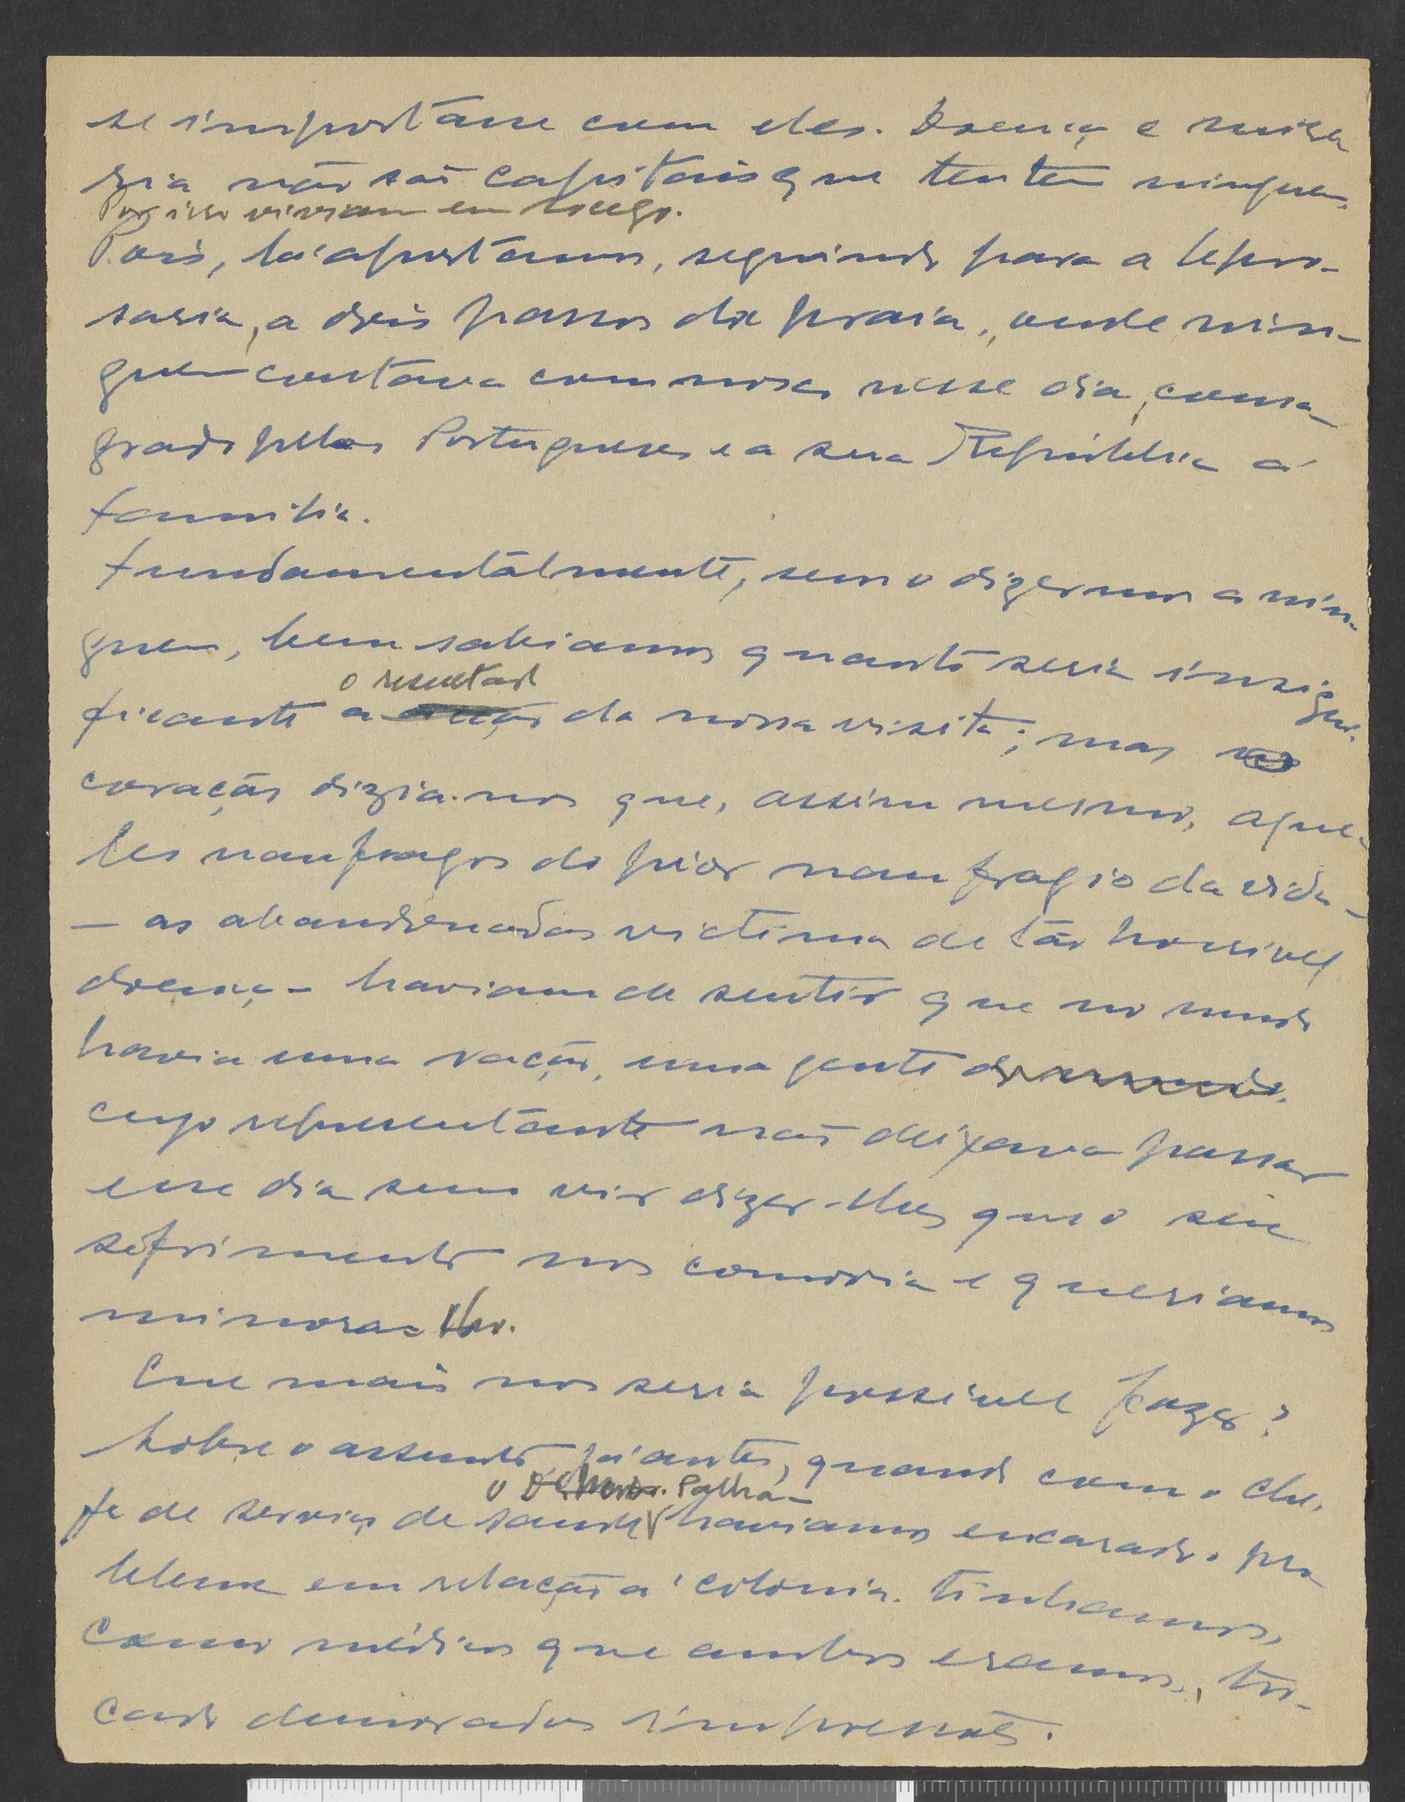 se importáne com eles. Doença e misé
ria não são capitais que tentem ninguem.
Por isso viviam em socego.
Pois, lá aportámos, seguindo para a lepro-
saria, a dois passos da praia, onde nin-
guem contava comnosco nesse dia, consa-
grado pelos Portugueses e a sua República á
familia.
Fundamentálmente, sem o dizermos a nin-
guem, bem sabiamos quanto seria insigni-
o resultado
ficante a da nossa visita; mas o
coração dizia-nos que, assim mesmo, aque-
les naufragos do pior naufragio da vida -
- as abandonadas victimas de tão horrivel
doença - haviam de sentir que no mundo
havia uma nação, uma gente
cujo representante não deixava passar
esse dia sem vir dizer-lhes que o seu
sofrimento nos comovia e queriamos
minora-lho.
Que mais nos seria possivel fazer?
Sobre o assunto, já antes, quando com o che-
o Dr. Palha-
fe de serviço de saude haviamos encarado o pro
blema em relação á colonia. Tinhamos,
como médicos que ambos eramos, tro-
cado demoradas impressões.